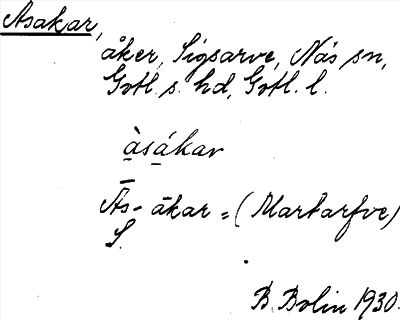 Asakar,
åker, Sigsarve, Näs sn,
Gotl. s. hd, Gotl. l.
à̱sá̱kar
Ās-ākar = (Martarfve)
S.
B. Bolin 1930.